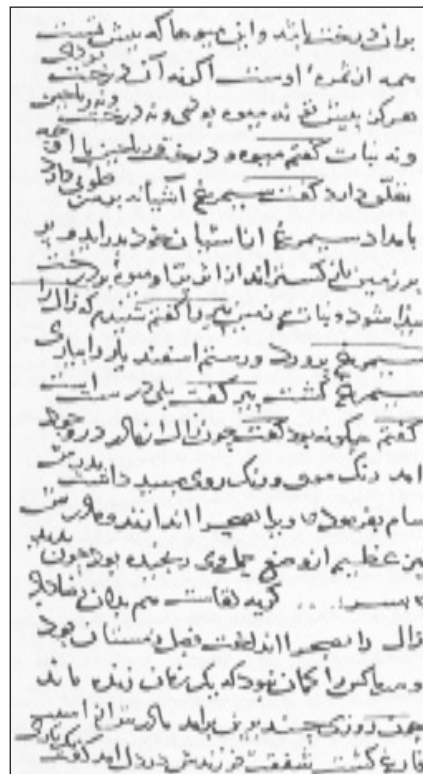 بر آن درخت باشد و این میوها که پیش تست
همه از ثمره اوست اگر نه آن درخت بودی
هرگز پیش تو نه میوه بودی و نه درخت و نه ریاحین
و نه نبات گفتم میوه و درخت و ریاحین با او چه
تعلق دارد گفت سیمرغ آشیانه بر سر طوبی دارد
بامداد سیمرغ از آشیان خود بدر آید و پر
بر زمین باز گستراند از اثر پر او میوه بر درخت
پیدا شود و نبات بر زمین پیر را گفتم شنیدم که زال را
سیمرغ پرورد و رستم اسفندیار را بیاری
سیمرغ کشت پیر گفت بلی درست است
گفتم چگونه بود گفت چون زال از مادر در وجود
آمد رنگ موی و رنگ روی سپید داشت پدرش
سام بفرمود که ویرا بصحرا اندازند و مادرش
نیز عظیم از وضع حمل وی رنجیده بود چون بدید
که پسر ... کریه لقاست هم بدان رضا داد
زال را بصحرا انداختند فصل زمستان بود
و سرما کس را گمان نبود که یک زمان زنده ماند
چون روزی چند برین برآمد مادرش از آسیب
فارغ گشت شفقت فرزندش در دل آمد گفت یکباری